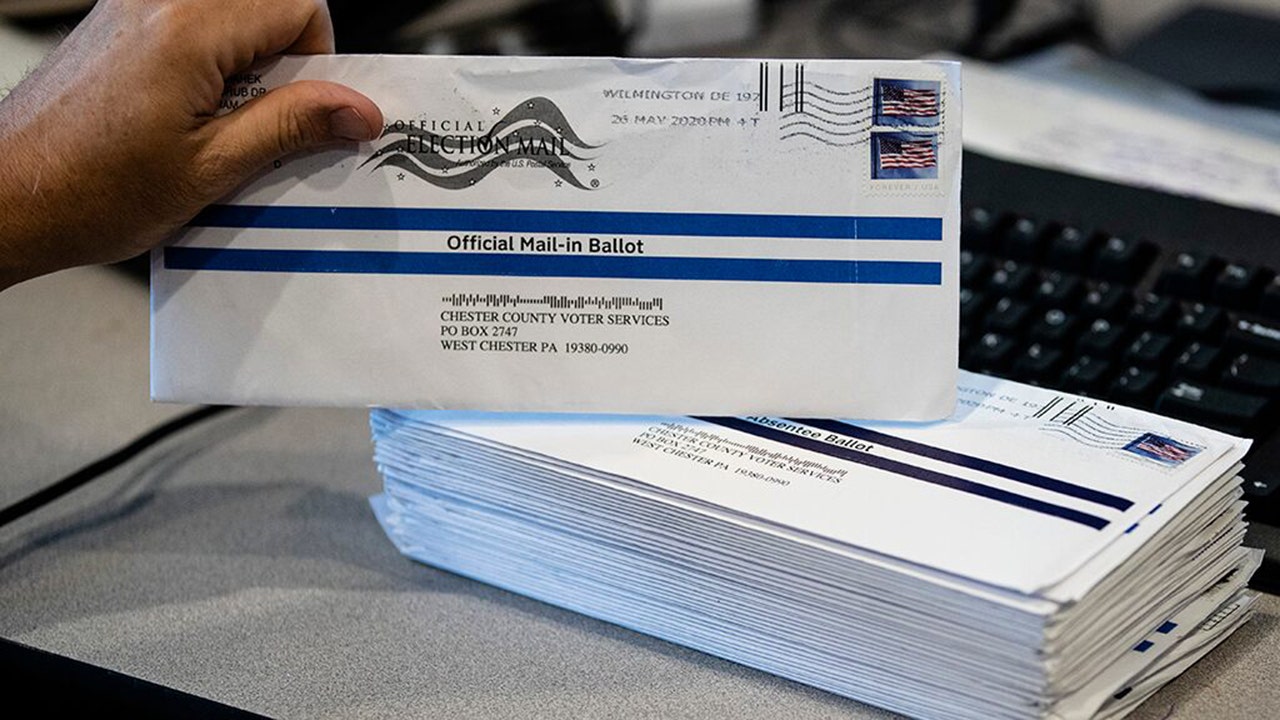 WILMINGTON DE 197
26 MAY 2020 PM 4 T
OFFICIAL
ELECTION MAIL
Authorized by the U.S. Postal Service
®
FOREVER / USA
Official Mail-in Ballot
CHESTER COUNTY VOTER SERVICES
PO BOX 2747
WEST CHESTER PA 19380-0990
Absentee Ballot
CHESTER COUNTY VOTER SERVICES
PO BOX 2747
WEST CHESTER PA 19380-0990